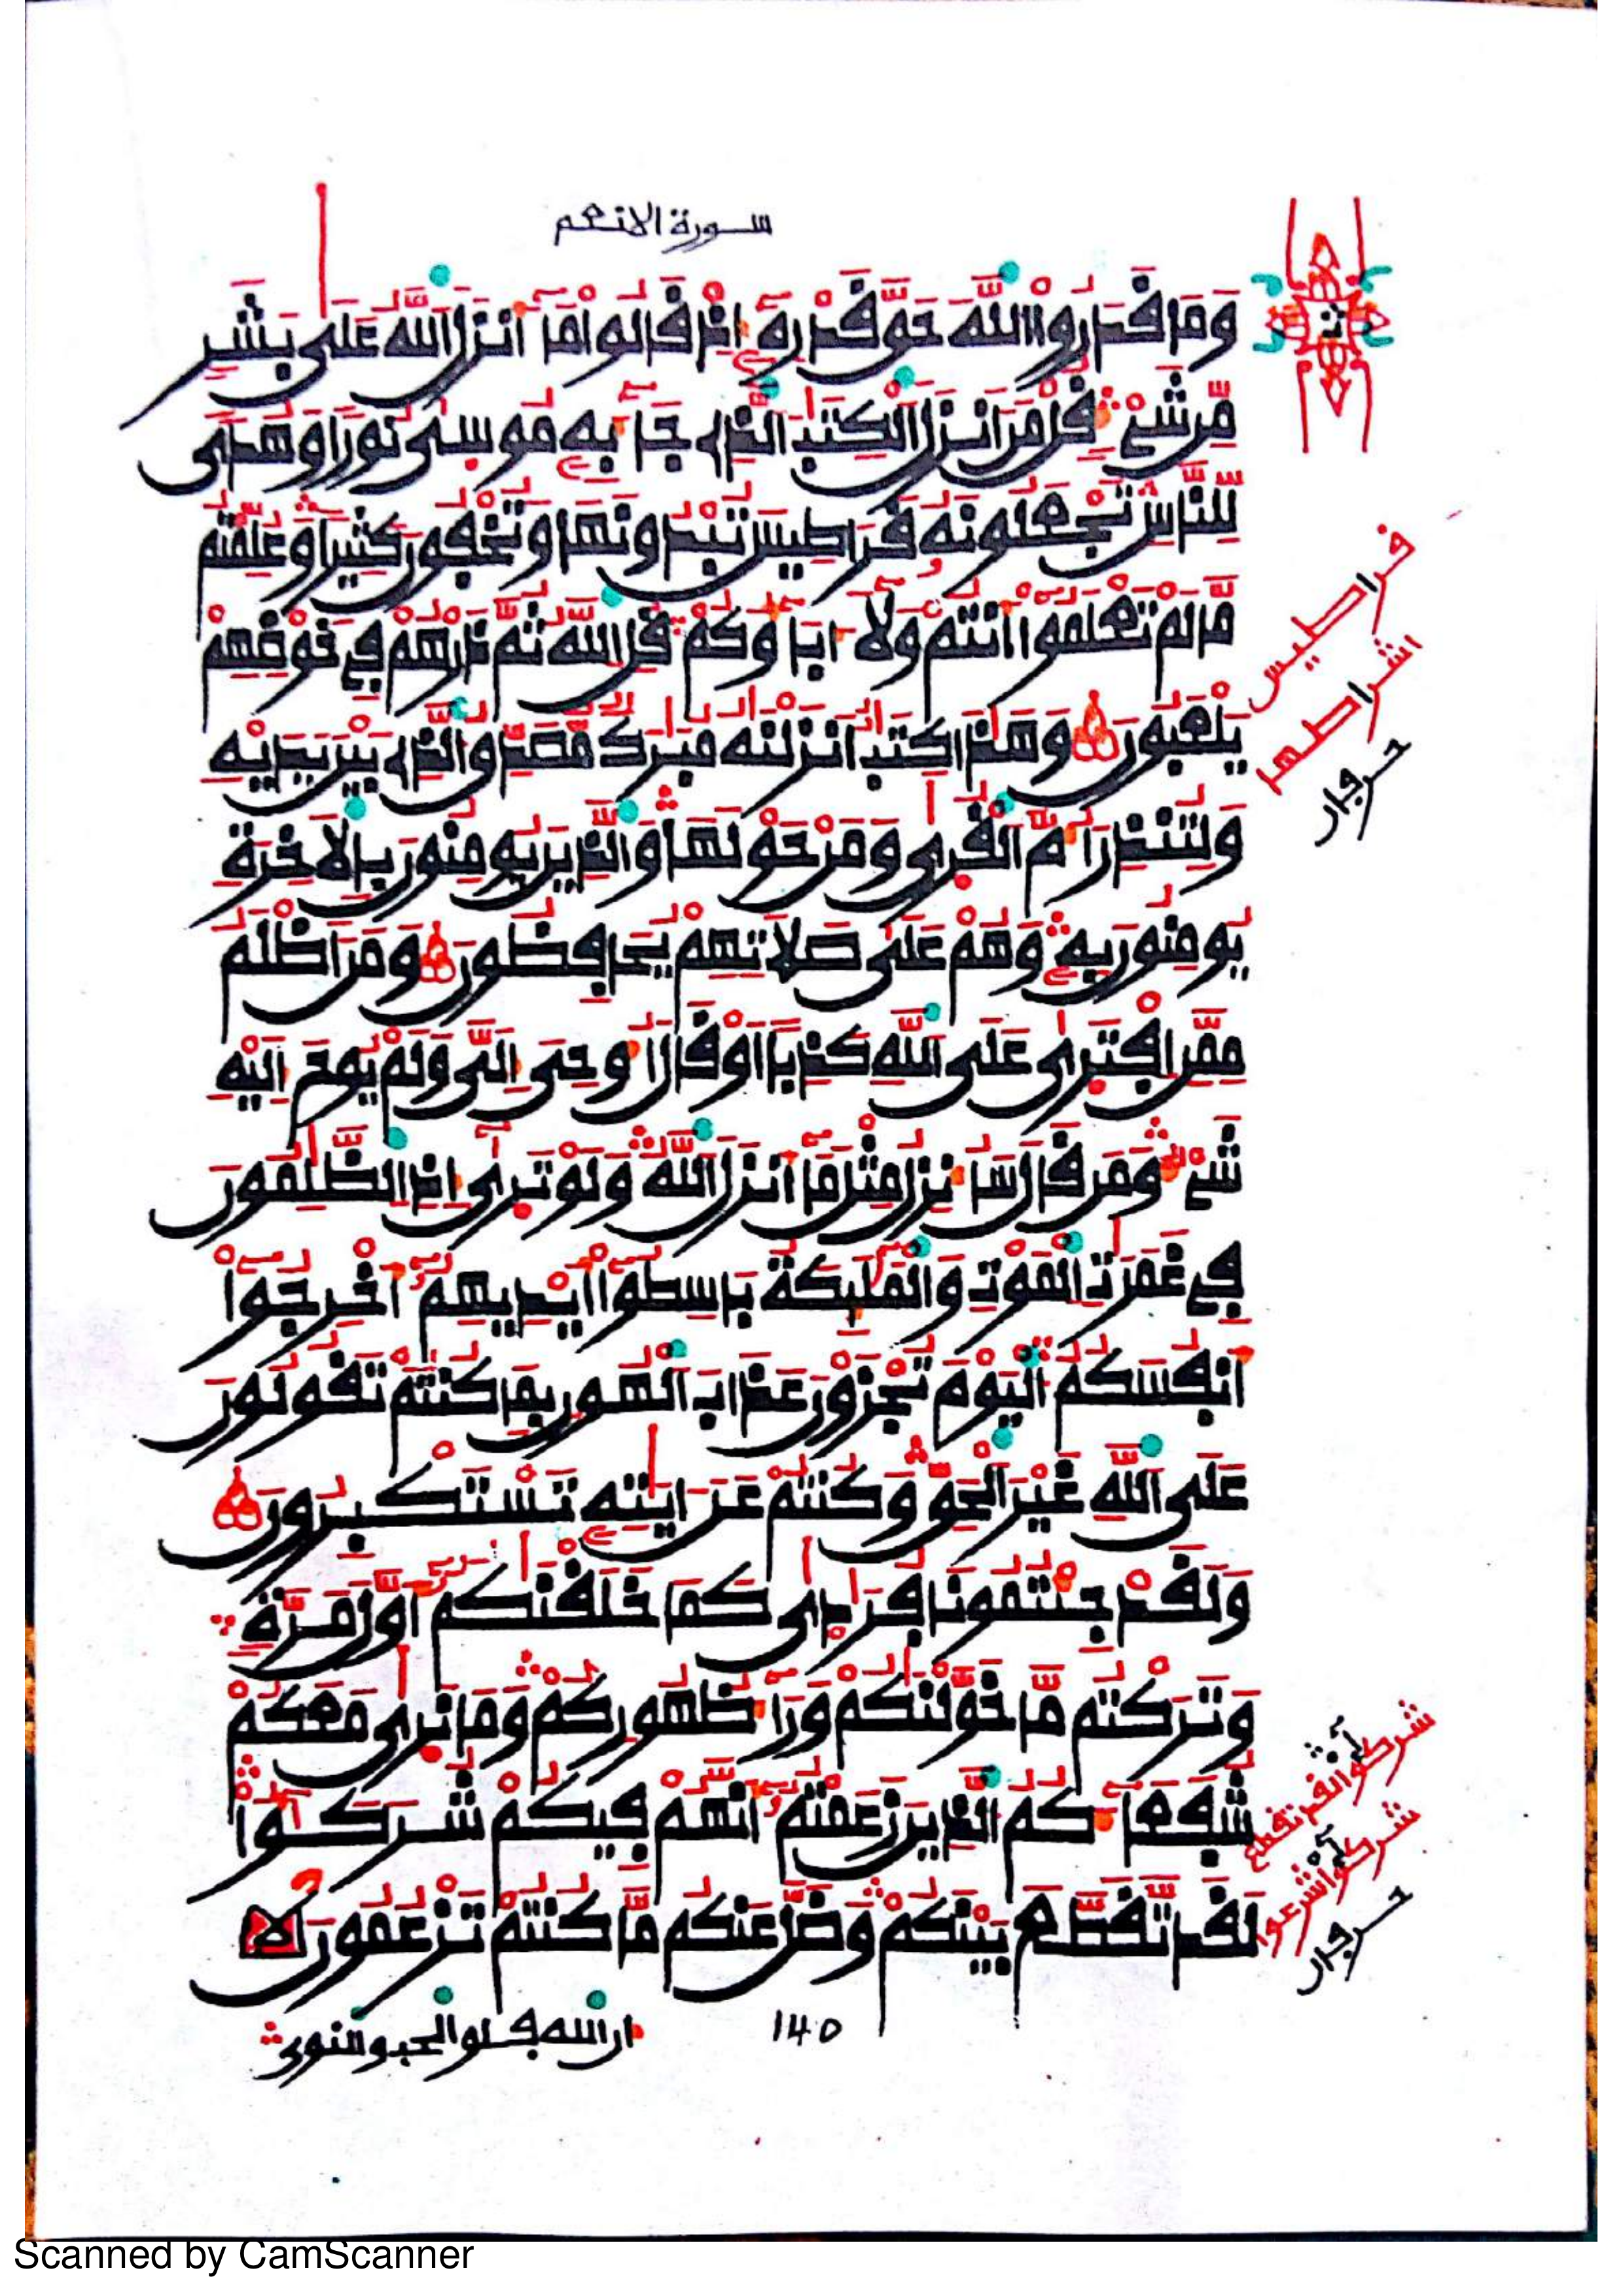 سورة الانعم
وَمَا قَدَرُواْ اللَّهَ حَقَّ قَدْرِهِ إِذْ قَالُواْ مَا أَنزَلَ اللَّهُ عَلَى بَشَرٍ
مِّن شَيْءٍ قُلْ مَنْ أَنزَلَ الْكِتَبَ الَّذِى جَاءَ بِهِ مُوسَى نُورًا وَهُدًى
لِّلنَّاسِ تَجْعَلُونَهُ قَرَاطِيسَ تُبْدُونَهَا وَتُخْفُونَ كَثِيرًا وَعُلِّمْتُم
مَّا لَمْ تَعْلَمُواْ أَنتُمْ وَلَا ءَابَاؤُكُمْ قُلِ اللَّهُ ثُمَّ ذَرْهُمْ فِى خَوْضِهِمْ
يَلْعَبُونَ وَهَذَا كِتَبٌ أَنزَلْنَهُ مُبَرَكٌ مُّصَدِّقُ الَّذِى بَيْنَ يَدَيْهِ
وَلِتُنذِرَ أُمَّ الْقُرَى وَمَنْ حَوْلَهَا وَالَّذِينَ يُومِنُونَ بِالْأَخِرَةِ
يُومِنُونَ بِهِ وَهُمْ عَلَى صَلَاتِهِمْ يُحَافِظُونَ وَمَنْ أَظْلَمُ
مِمَّنِ افْتَرَى عَلَى اللَّهِ كَذِبًا أَوْ قَالَ أُوحِىَ إِلَىَّ وَلَمْ يُوحَ إِلَيْهِ
شَيْءٌ وَمَن قَالَ سَأُنزِلُ مِثْلَ مَا أَنزَلَ اللَّهُ وَلَوْ تَرَى إِذِ الظَّلِمُونَ
فِى غَمَرَتِ الْمَوْتِ وَالْمَلَئِكَةُ بَاسِطُواْ أَيْدِيهِمْ أَخْرِجُواْ
أَنفُسَكُمُ الْيَوْمَ تُجْزَوْنَ عَذَابَ الْهُونِ بِمَا كُنتُمْ تَقُولُونَ
عَلَى اللَّهِ غَيْرَ الْحَقِّ وَكُنتُمْ عَنْ ءَايَتِهِ تَسْتَكْبِرُونَ
وَلَقَدْ جِئْتُمُونَا فُرَادَى كَمَا خَلَقْنَكُمْ أَوَّلَ مَرَّةٍ
وَتَرَكْتُم مَّا خَوَّلْنَكُمْ وَرَاءَ ظُهُورِكُمْ وَمَا نَرَى مَعَكُمْ
شُفَعَاءَكُمُ الَّذِينَ زَعَمْتُمْ أَنَّهُمْ فِيكُمْ شُرَكَؤُاْ
لَقَد تَّقَطَّعَ بَيْنَكُمْ وَضَلَّ عَنكُم مَّا كُنتُمْ تَزْعُمُونَ
ان الله فلق الحب والنوى
140
قراطيس
اشراطها
Scanned by CamScanner